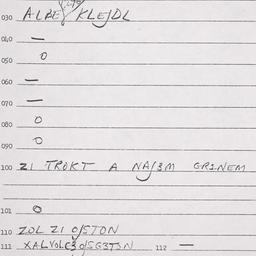 030 ALBE KLEJDL
040 —
050 0
060 —
070 —
080 0
090 0
100 ZI TROKT A NAJ3M GR1NEM
101 0
110 ZOL ZI OJSTON
111 XALVOLC3 OJSG3T3N 112 —